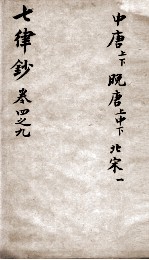 中唐上下 晚唐上中下 北宋一
七律鈔 卷四之九